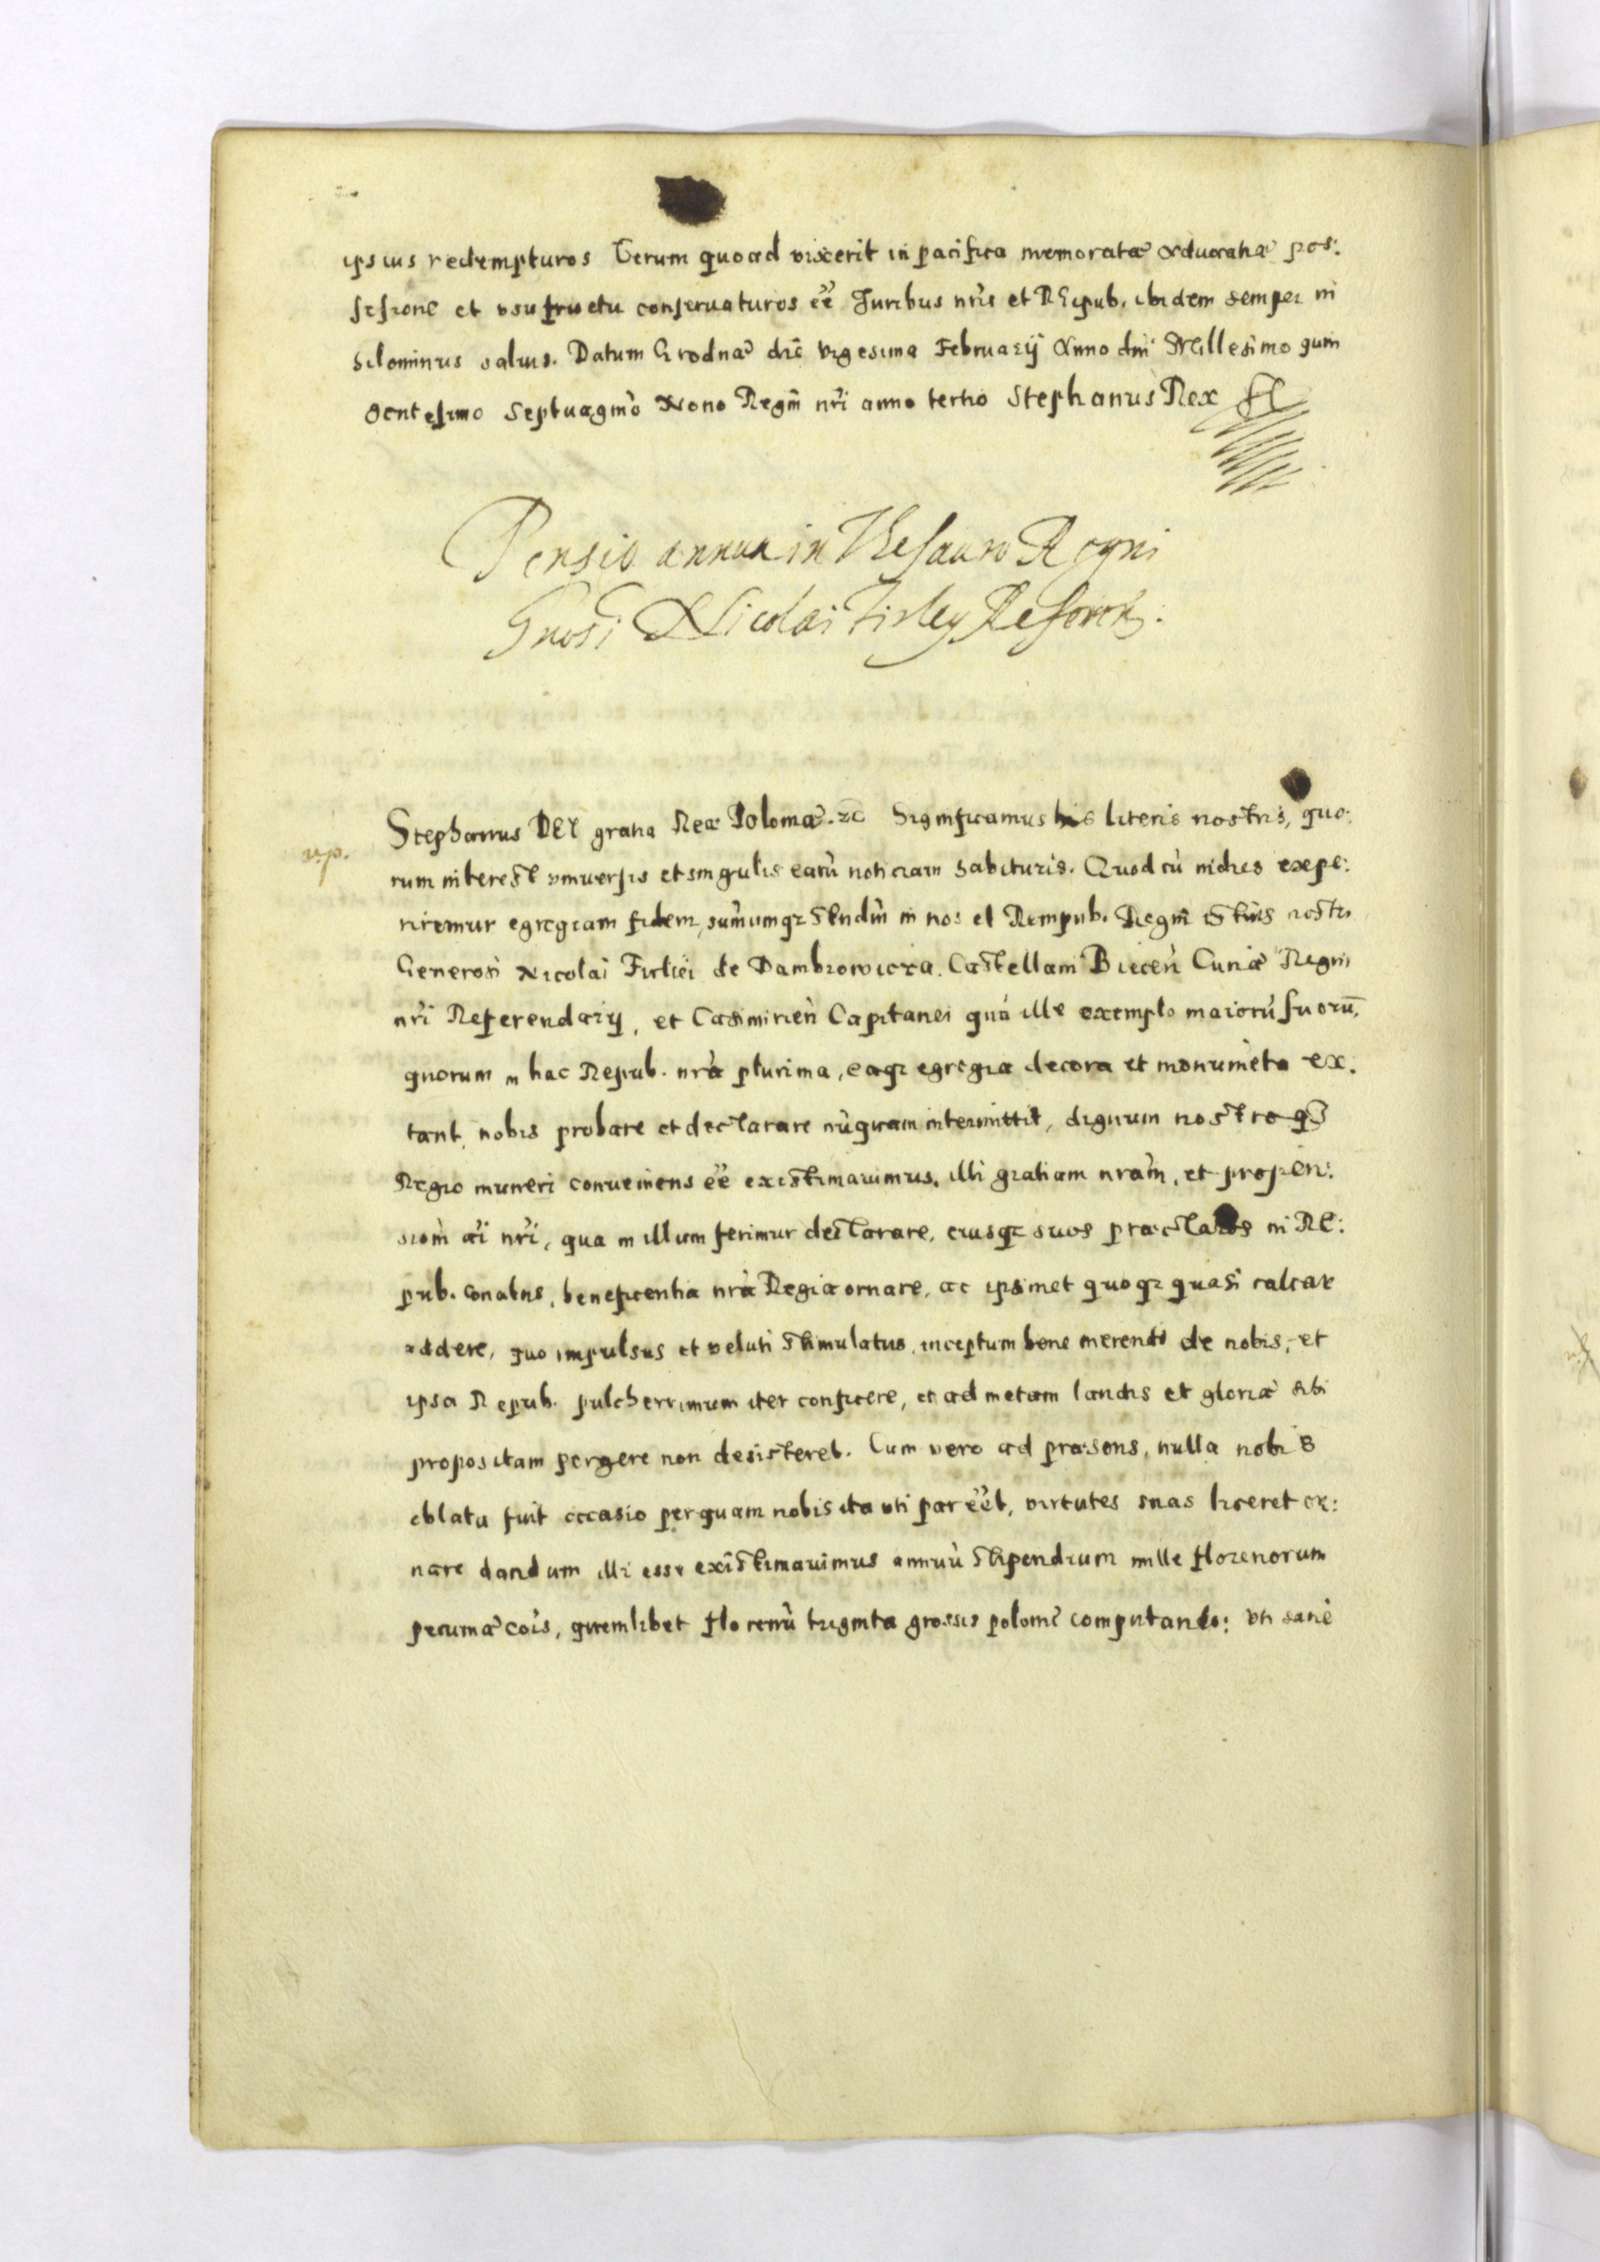 ipsius redempturos Verum quoad vixerit in pacifica memoratæ Aduocatiæ pos:
sessione et vsufructu conseruaturos eē Iuribus nr̃is et REipub. ibidem semper ni
hilominus saluis. Datum Grodnæ die vigesima Februarij Anno dni Millesimo quin
gentesimo Septuagmo Nono Regni nr̃i anno tertio Stephanus Rex
Pensio annua in Thesauro Regni
Gnosi Nicolai Firley Referend.
Stephanus DEI gratia Rex Poloniæ. zc Significamus his literis nostris, quo:
np.
rum interest vniuersis et singulis earũ noticiam habituris. Quod cũ indies expe:
riremur egregiam fidem, sum̃umqz studm̃ in nos et Rempub. Regni istius nostri
Generosi Nicolai Firlei de Dambrowicza. Castellani Biecen̄ Curiæ Regni
nr̃i Referendarij, et Casimirien̄ Capitanei quã ille exemplo maiorũ suorũ,
quorum in hac Repub. nr̃a plurima, eaqz egregia decora et monumẽta ex:
tant nobis probare et declarare nũquam intermittit, dignum nostroqz
Regio muneri conueniens eẽ existimauimus, illi gratiam nram̃, et propen:
siom̃ ai nr̃i, qua in illum ferimur declarare, eiusqz suos præclaros in RE:
pub. conatus, beneficentia nr̃a Regia ornare, ac ipsimet quoqz quasi calcar
addere, quo impulsus et veluti stimulatus, inceptum bene merendi de nobis, et
ipsa Repub. pulcherrimum iter conficere, et ad metam laudis et gloriæ sibi
propositam pergere non desisteret. Cum vero ad præsens, nulla nobis
oblata fuit occasio per quam nobis ita vti par eẽt, virtutes suas liceret or:
nare dandum illi esse existimauimus annuũ stipendium mille florenorum
pecuniæ cois̃, quemlibet florenũ triginta grossis polonĩ computando: vti sanè